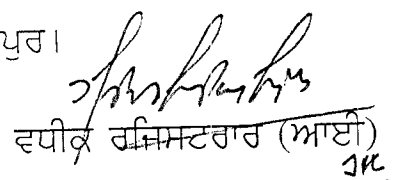 ਪੁਰ।
ਵਧੀਕ ਰਜਿਸਟਰਾਰ (ਆਈ)